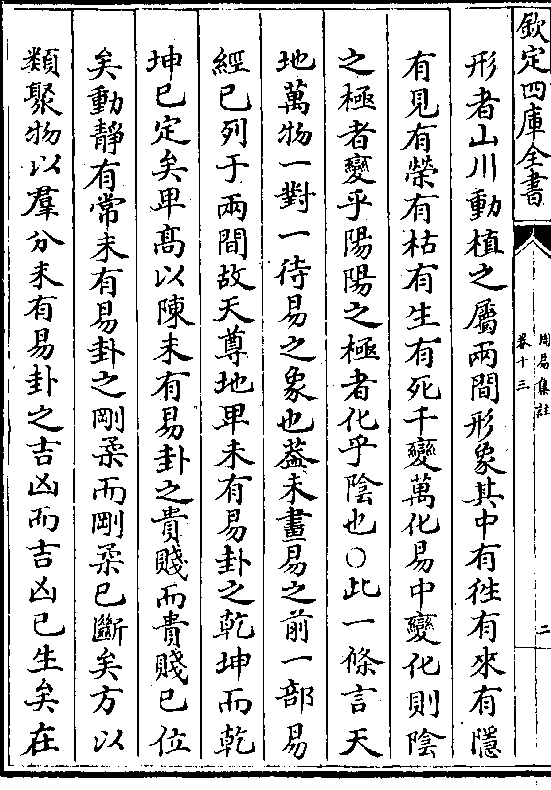 欽定四庫全書
周易集註
卷十三
二
形者山川動植之屬兩間形象其中有徃有來有隱
有見有榮有枯有生有死千變萬化易中變化則陰
之極者變乎陽陽之極者化乎陰也○此一條言天
地萬物一對一待易之象也葢未畫易之前一部易
經已列于兩間故天尊地卑未有易卦之乾坤而乾
坤已定矣卑髙以陳未有易卦之貴賤而貴賤已位
矣動靜有常未有易卦之剛柔而剛柔已斷矣方以
類聚物以羣分未有易卦之吉凶而吉凶已生矣在